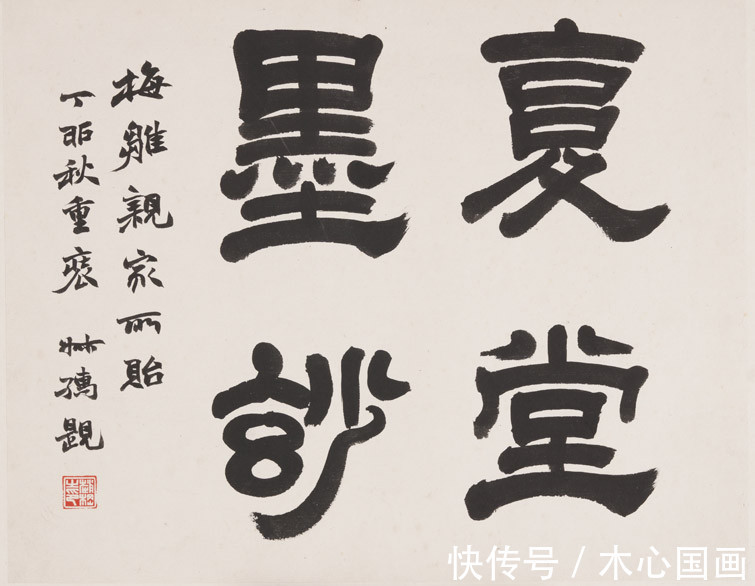 夏堂
墨玅
梅雛親家所貽
丁卯秋重裝 叔孺題
快传号 / 木心国画